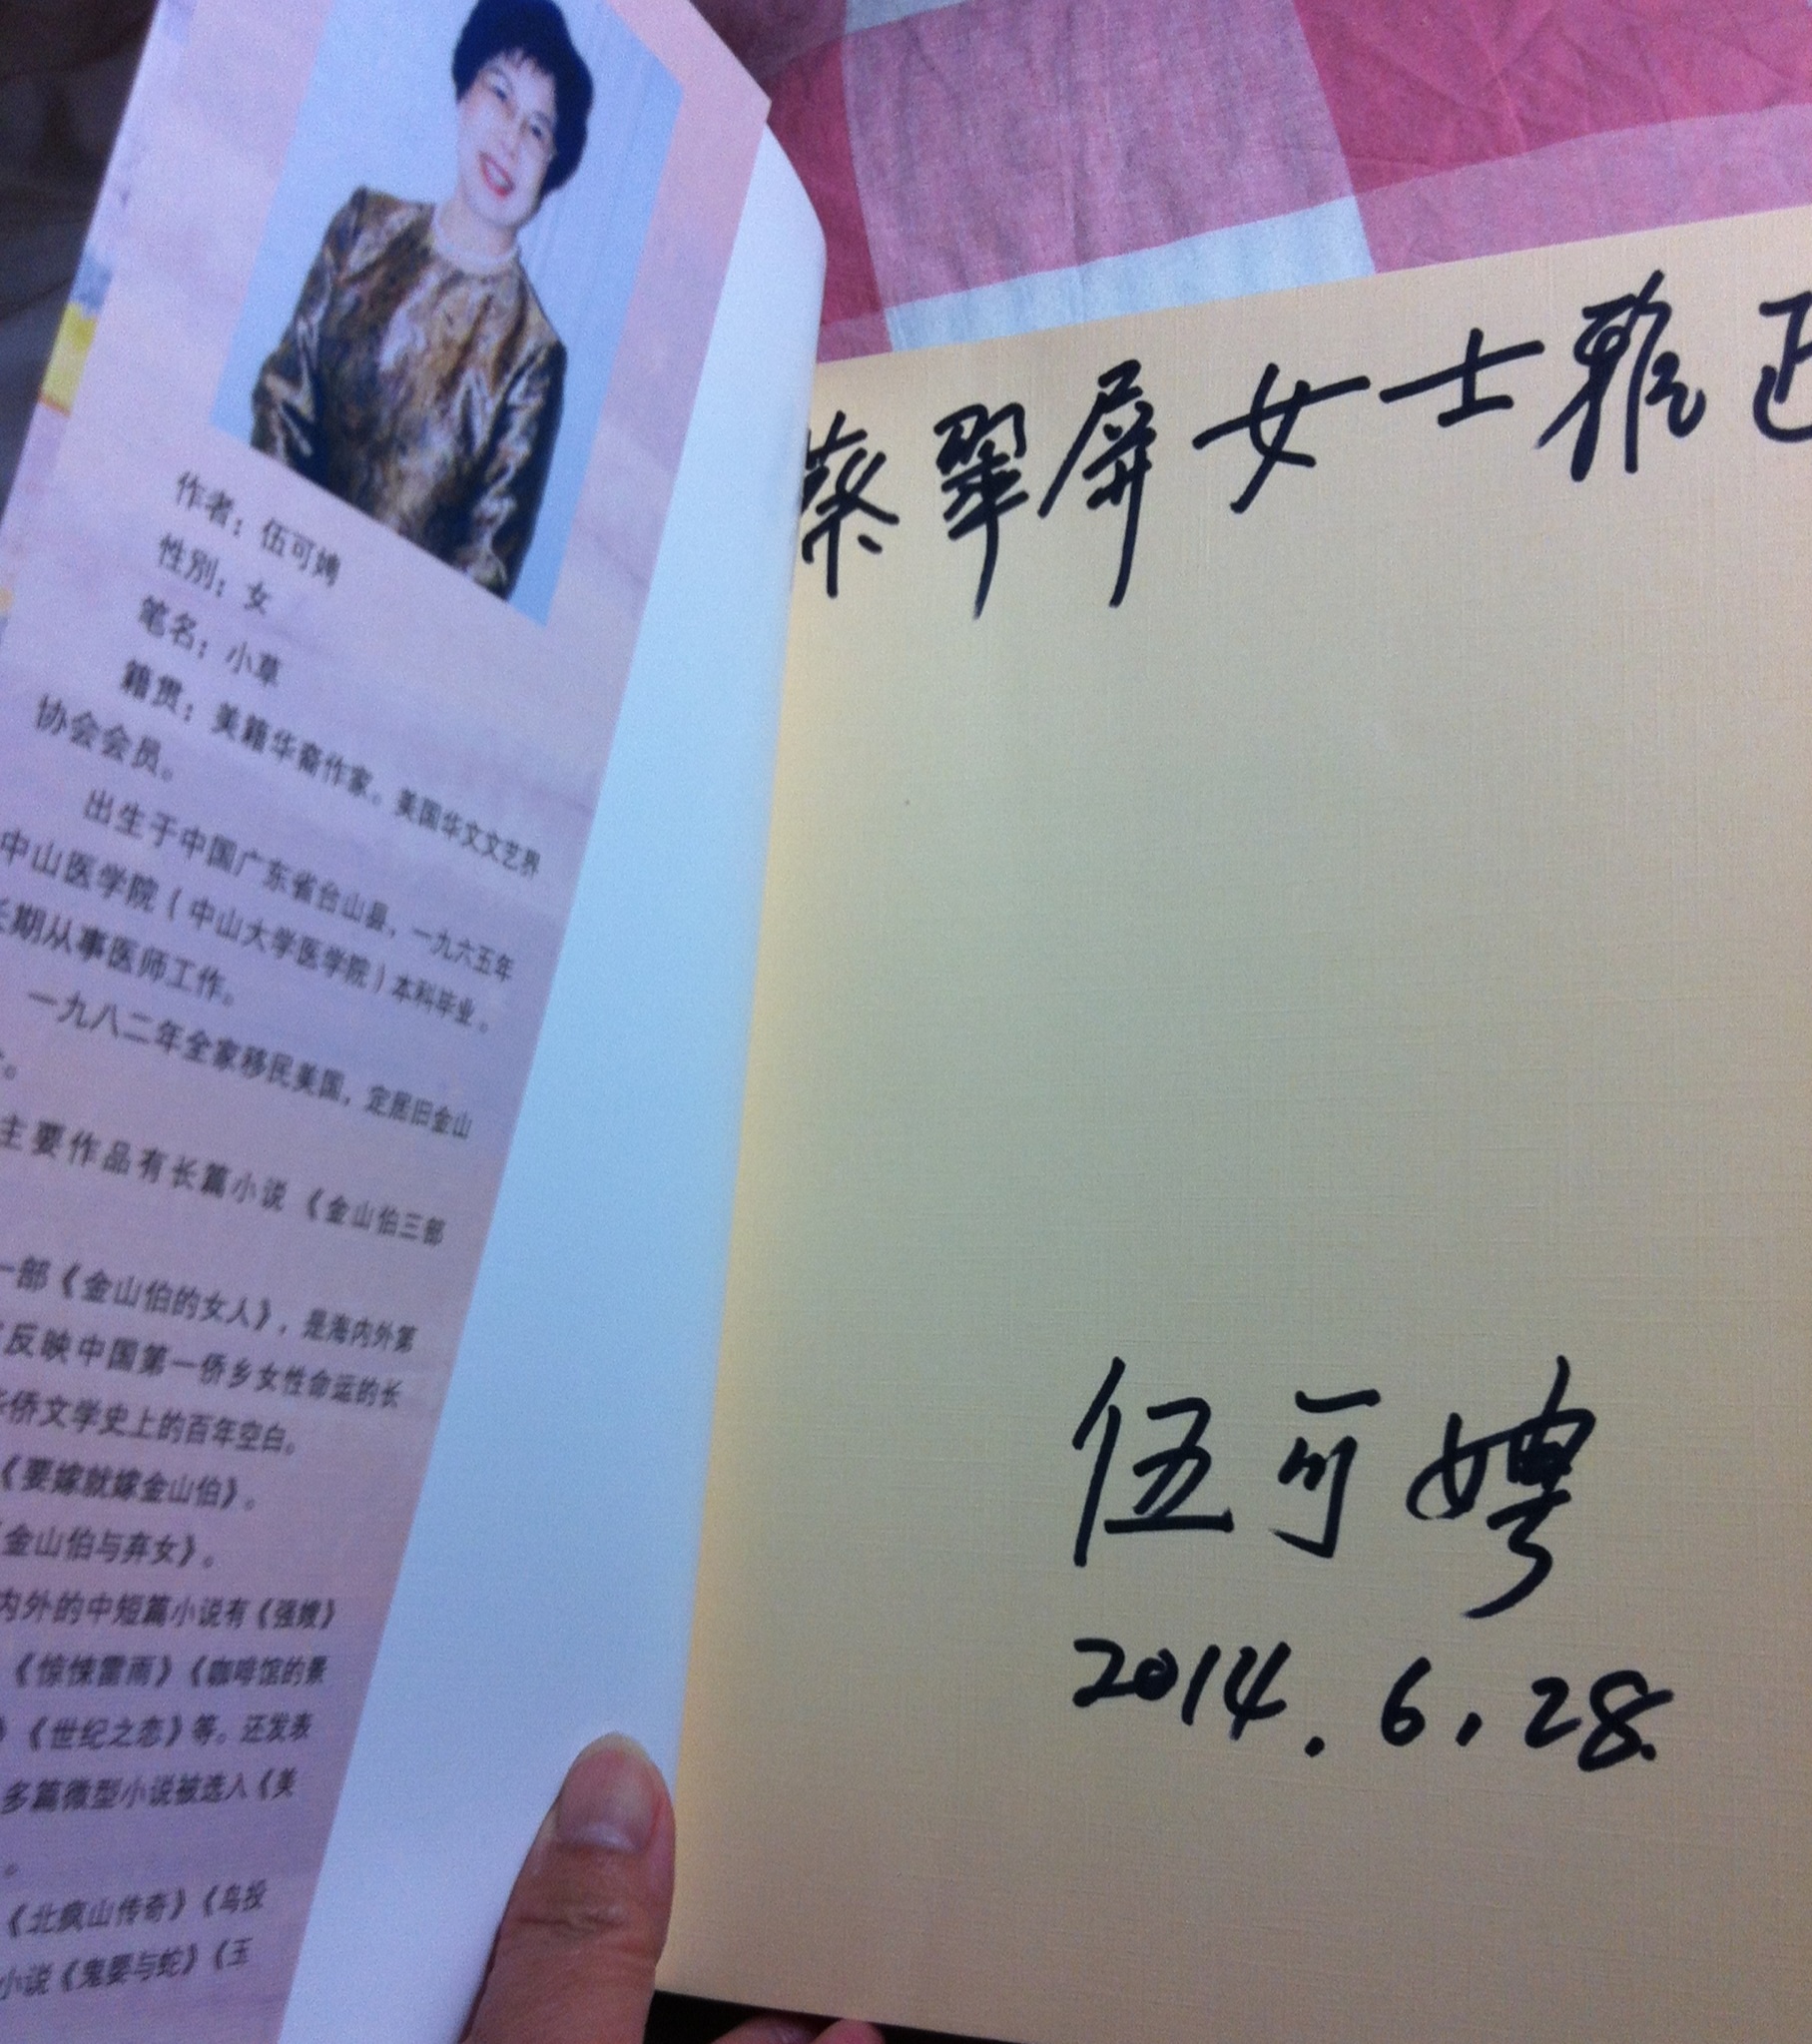 作者：伍可娉
性别：女
笔名：小草
籍贯：美籍华裔作家。美国华文文艺界
协会会员。
出生于中国广东省台山县，一九六五年
中山医学院（中山大学医学院）本科毕业。
长期从事医师工作。
一九八二年全家移民美国，定居旧金山
。
主要作品有长篇小说《金山伯三部
一部《金山伯的女人》，是海内外第
反映中国第一侨乡女性命运的长
华侨文学史上的百年空白。
《要嫁就嫁金山伯》。
《金山伯与弃女》。
内外的中短篇小说有《强嫂》
《惊悚雷雨》《咖啡馆的景
》《世纪之恋》等。还发表
多篇微型小说被选入《美
。
《北疯山传奇》《鸟投
小说《鬼婴与蛇》《玉
蔡翠屏女士雅正
伍可娉
2014.6.28.